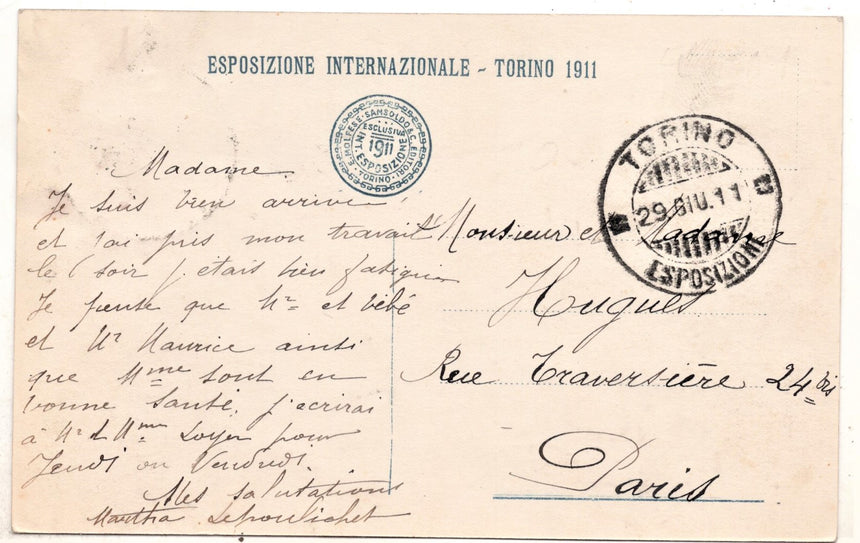 ESPOSIZIONE INTERNAZIONALE - TORINO 1911
E. MOLFESE - SANSOLDO & C. EDITORI - TORINO
ESCLUSIVA
1911
INT. ESPOSIZIONE
TORINO
29 GIU. 11
ESPOSIZIONE
Madame
Je suis bien arrivé
et j'ai pris mon travail
le soir j'étais bien
Je pense que Mr et bébé
et Mr Maurice ainsi
que Mme sont en
bonne santé, j'ecrirai
à Mr et Mme Loyer pour
Jeudi ou Vendredi
Mes salutations
Martha Lepoulichet
Monsieur et Madame
Hugues
Rue Traversière 24 bis
Paris